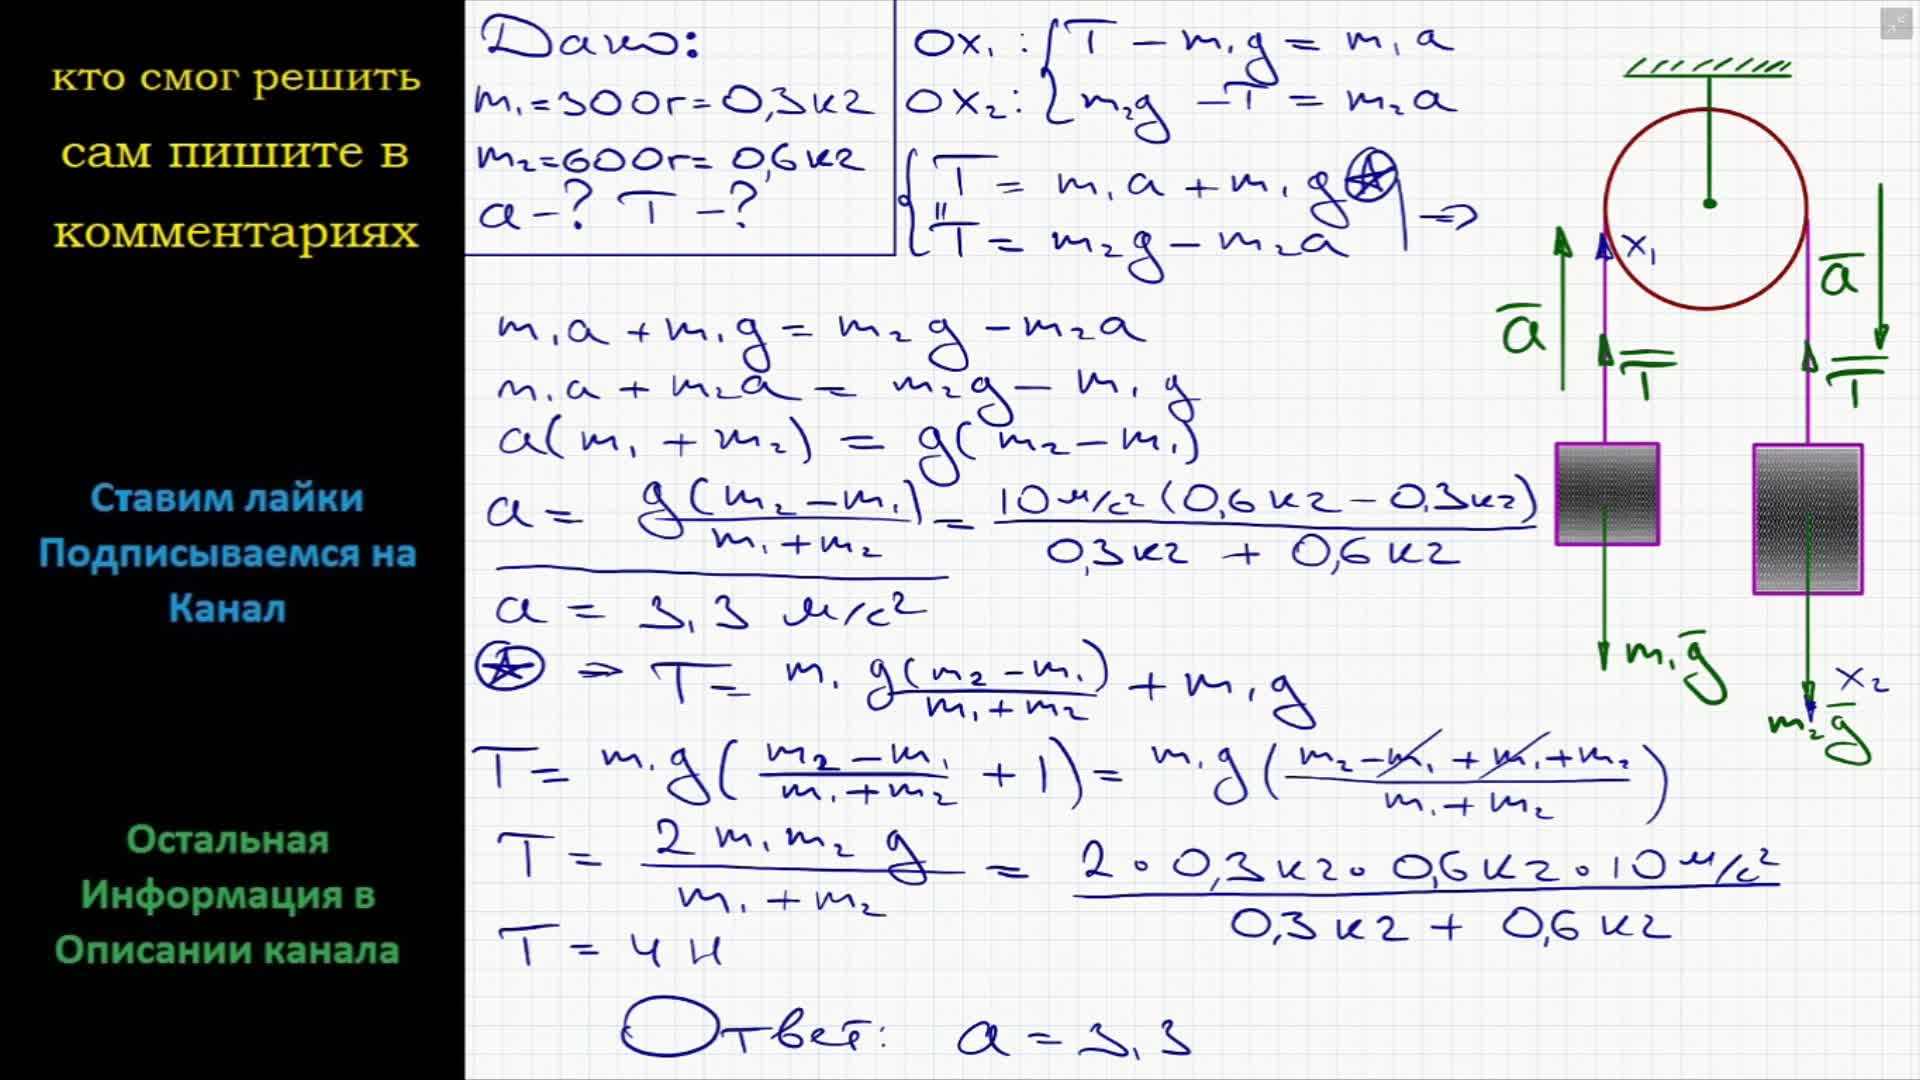 кто смог решить
сам пишите в
комментариях
Ставим лайки
Подписываемся на
Канал
Остальная
Информация в
Описании канала
Дано:
m₁=300г=0,3кг
m₂=600г=0,6кг
a-? T-?
Ox₁: T - m₁g = m₁a
Ox₂: m₂g - T = m₂a
T = m₁a + m₁g ☆
"
T = m₂g - m₂a ⇒
m₁a + m₁g = m₂g - m₂a
m₁a + m₂a = m₂g - m₁g
a(m₁ + m₂) = g(m₂ - m₁)
a = g(m₂ - m₁)/(m₁ + m₂) = 10 м/с² (0,6кг - 0,3кг)/(0,3кг + 0,6кг)
a = 3,3 м/с²
☆ ⇒ T = m₁ g(m₂ - m₁)/(m₁ + m₂) + m₁g
T = m₁g((m₂ - m₁)/(m₁ + m₂) + 1) = m₁g((m₂ - m₁ + m₁ + m₂)/(m₁ + m₂))
T = 2m₁m₂g/(m₁ + m₂) = 2·0,3кг·0,6кг·10м/с²/(0,3кг + 0,6кг)
T = 4 Н
Ответ: a = 3,3
x₁
a̅
a̅
T̅
T̅
m₁g̅
x₂
m₂g̅